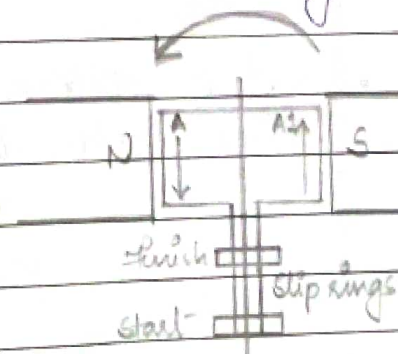 A A1
N S
finish
slip rings
start